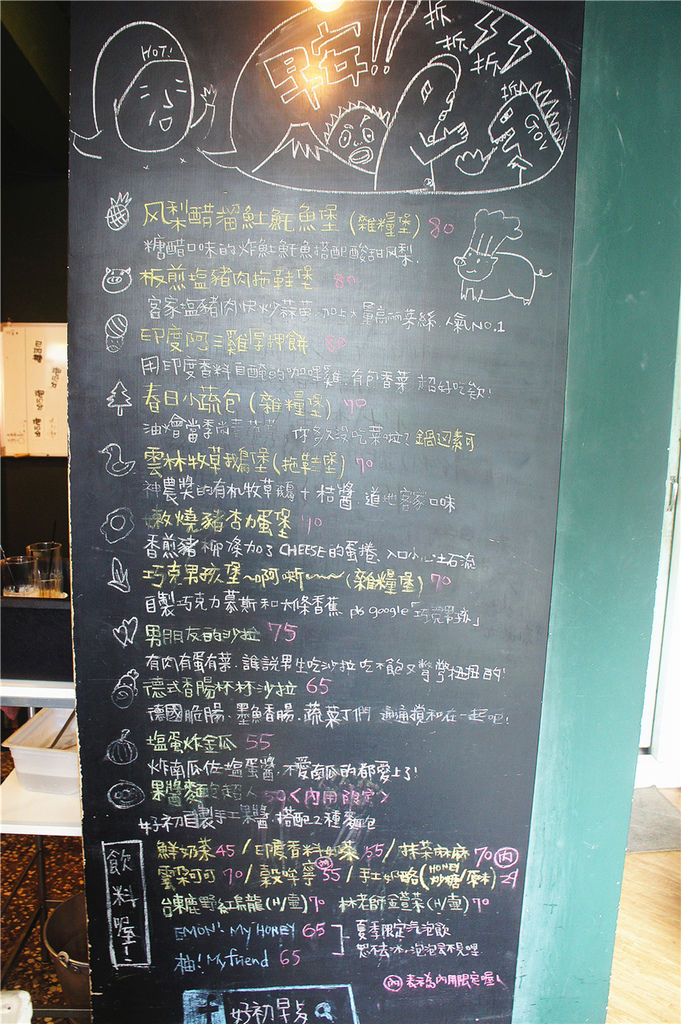 HOT!
早安!!
拆
拆
拆
拆
GOV
风梨醋溜魠魠魚堡(雜糧堡) 80
糖醋口味的炸魠魠魚搭配酸甜风梨.
板煎塩豬肉拖鞋堡 80
客家塩豬肉快炒蒜苗.加上大量高麗菜絲.人氣NO.1
印度阿三雞字押餅 80
用印度香料自醃的咖哩雞.有包香菜 超好吃欸!
春日小蔬包(雜糧堡) 70
油燴當季尚青 你多久没吃菜啦?
雲林牧草鵝堡(拖鞋堡) 70
神農獎的有机牧草鵝+桔醬.道地客家口味
嫩燒豬杏力蛋堡 70
香煎豬柳條加了CHEESE的蛋捲.入口小心土石流
巧克男孩堡~啊嘶~~(雜糧堡) 70
自製巧克力慕斯和大條香蕉 ps google「巧克男孩」
男朋友的沙拉 75
有肉有蛋有菜.誰說男生吃沙拉吃不飽又彆彆扭扭的!
德式香腸杯杯沙拉 65
德國脆腸.墨魚香腸.蔬菜丁們 通通攪和在一起吧!
塩蛋炸金瓜 55
炸南瓜佐塩蛋醬.不愛南瓜的都愛上了!
果醬麵包超人 50<內用限定>
好初自製手工果醬.搭配2種麵包
飲料喔!
鮮奶茶45/印度香料奶茶55/抹茶麻麻70 內
雲朵可可70/穀 55/手工奶酪(HONEY/ /原味)
台東鹿野紅烏龍(H/壺)70 林老師金萱茶(H/壺)70
EMON! My HONEY 65
夏季限定汽泡飲
要去冰,泡泡會不見喔
柚! My friend 65
內 表示為內用限定喔!
好初早